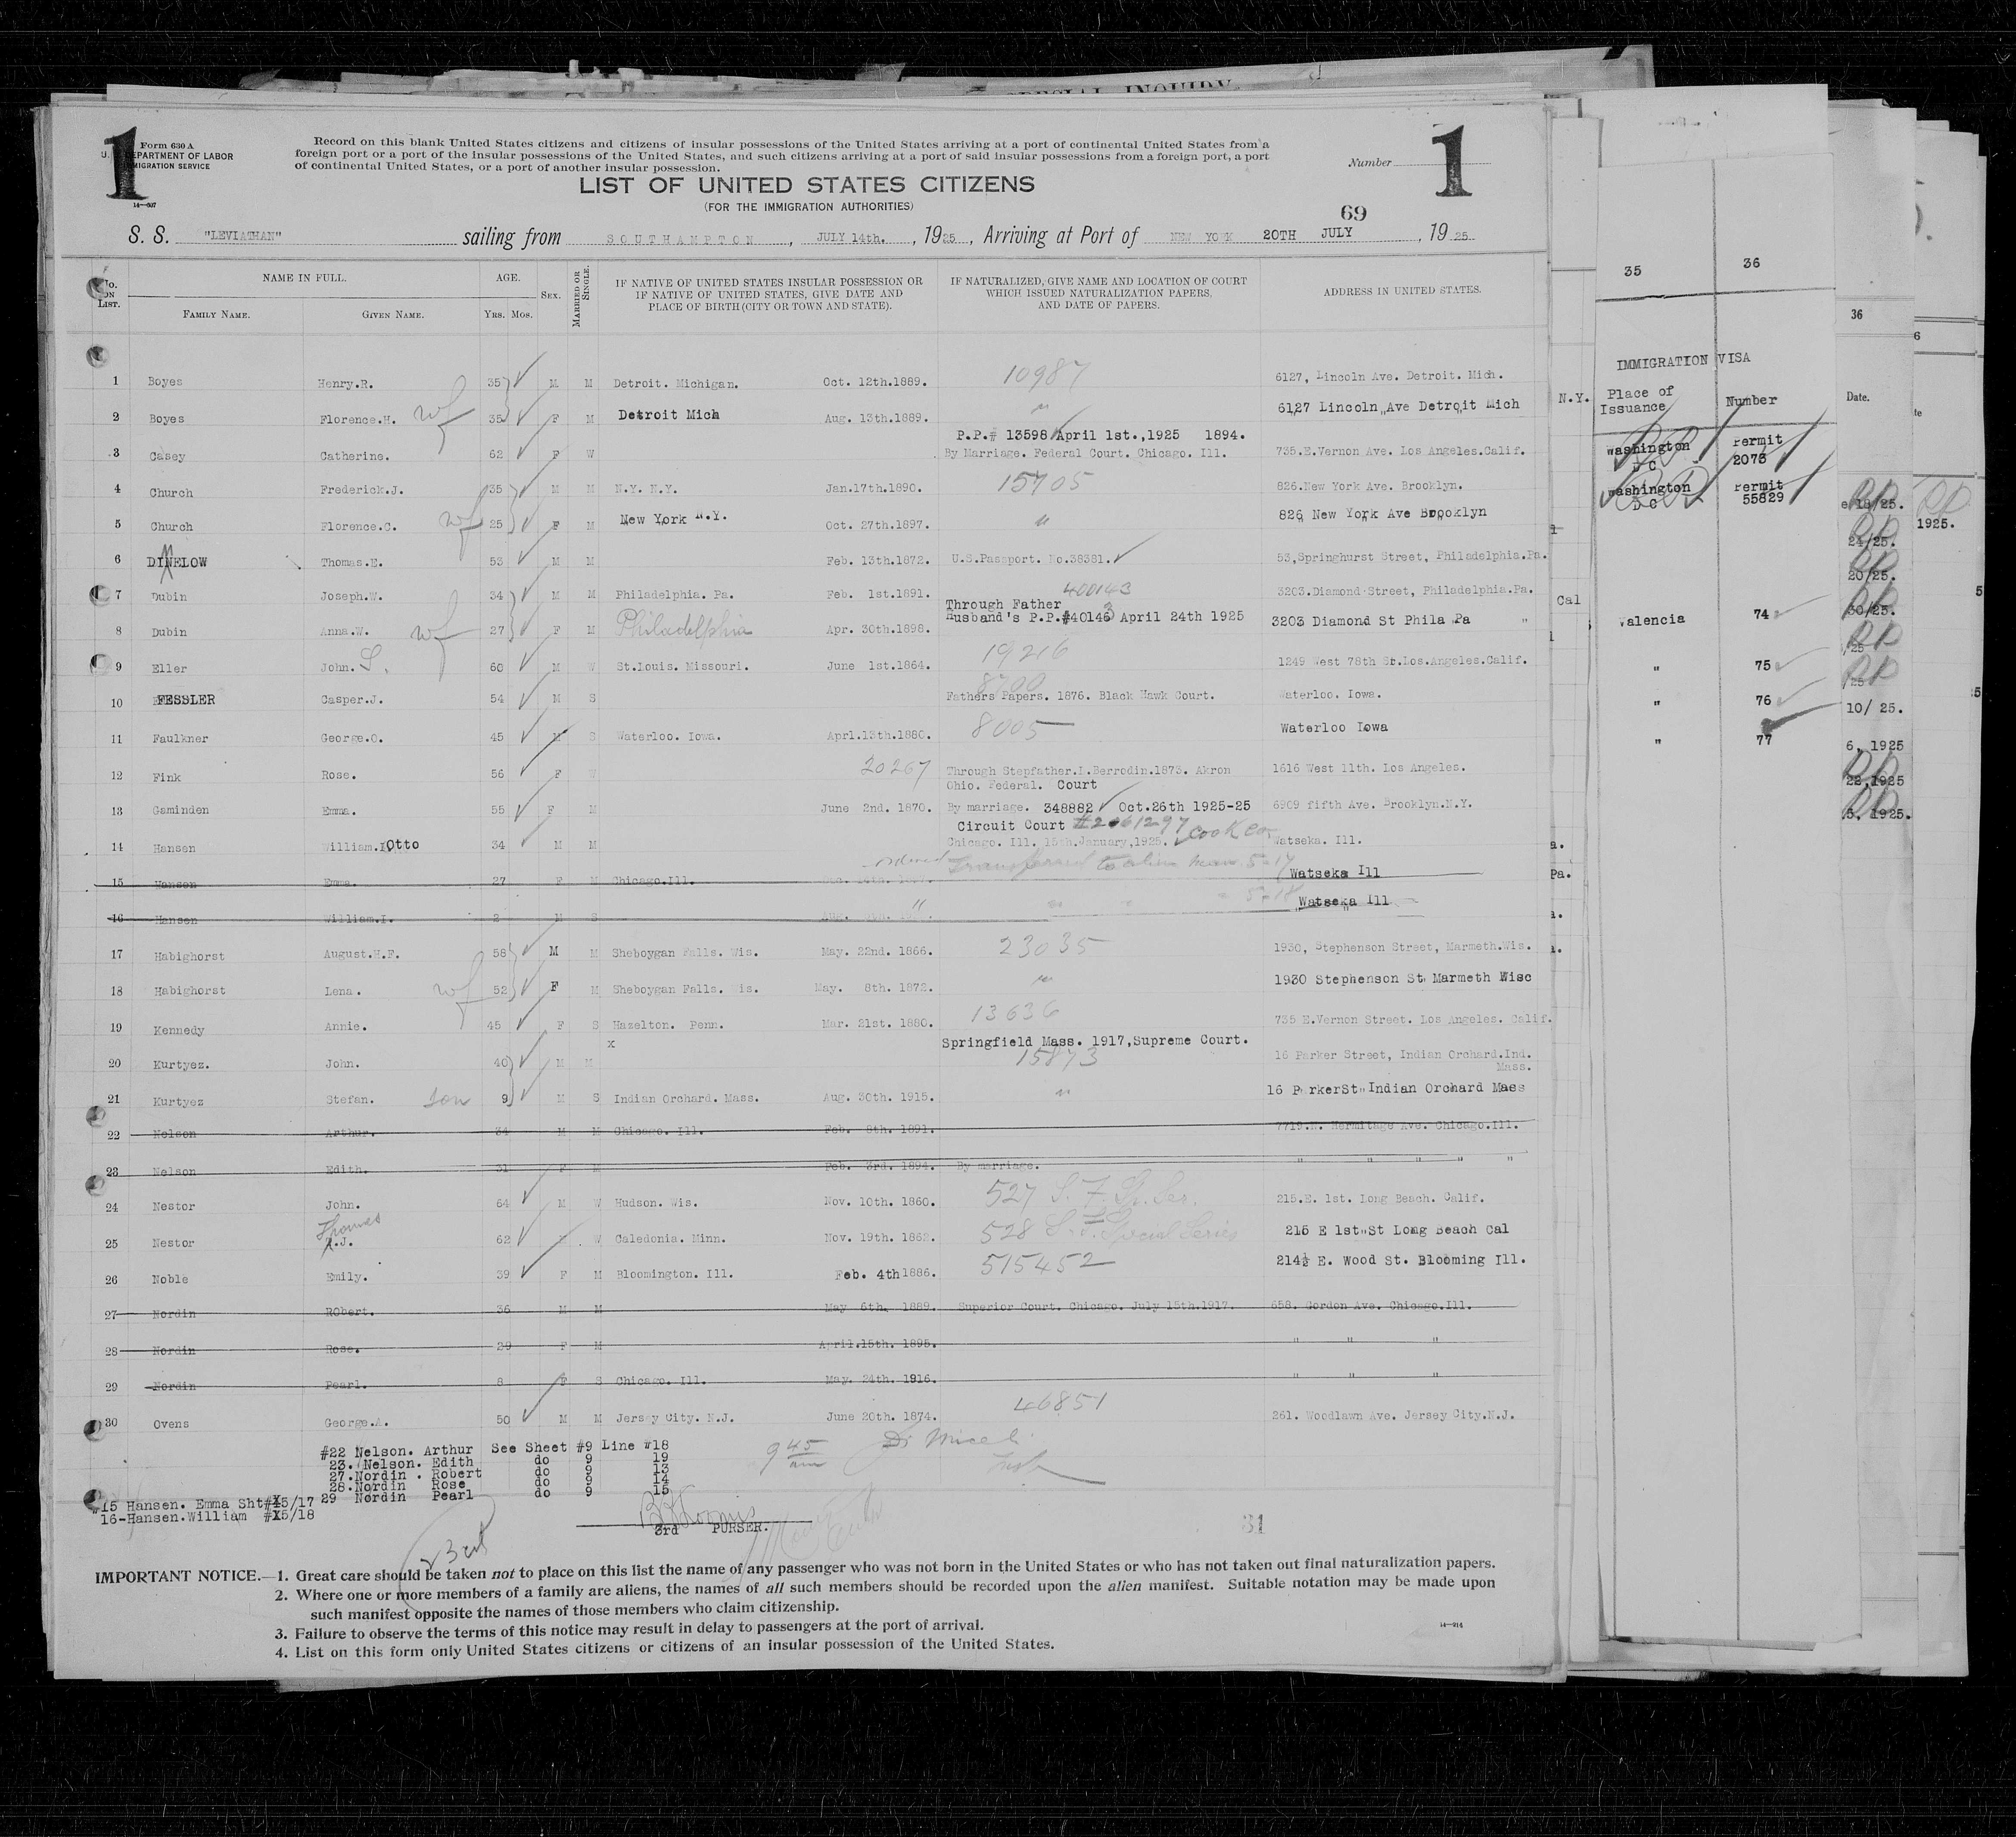 SPECIAL INQUIRY
1
Form 630 A
U. S. DEPARTMENT OF LABOR
IMMIGRATION SERVICE
14—507
Record on this blank United States citizens and citizens of insular possessions of the United States arriving at a port of continental United States from a
foreign port or a port of the insular possessions of the United States, and such citizens arriving at a port of said insular possessions from a foreign port, a port
of continental United States, or a port of another insular possession.
Number 1
LIST OF UNITED STATES CITIZENS
(FOR THE IMMIGRATION AUTHORITIES)
69
S. S. "LEVIATHAN" sailing from SOUTHAMPTON, JULY 14th., 1925, Arriving at Port of NEW YORK 20TH JULY, 1925
No. ON LIST. NAME IN FULL. FAMILY NAME. GIVEN NAME. AGE. YRS. MOS. SEX. MARRIED OR SINGLE. IF NATIVE OF UNITED STATES INSULAR POSSESSION OR IF NATIVE OF UNITED STATES, GIVE DATE AND PLACE OF BIRTH (CITY OR TOWN AND STATE). IF NATURALIZED, GIVE NAME AND LOCATION OF COURT WHICH ISSUED NATURALIZATION PAPERS, AND DATE OF PAPERS. ADDRESS IN UNITED STATES.
1 Boyes Henry.R. 35 M M Detroit. Michigan. Oct. 12th.1889. 10987 6127, Lincoln Ave. Detroit. Mich.
2 Boyes Florence.H. wf 35 F M Detroit Mich Aug. 13th.1889. " 6127 Lincoln Ave Detroit Mich
P.P.# 13598 April 1st.,1925 1894.
3 Casey Catherine. 62 F W By Marriage. Federal Court. Chicago. Ill. 735.E.Vernon Ave. Los Angeles.Calif.
4 Church Frederick.J. 35 M M N.Y. N.Y. Jan.17th.1890. 15705 826.New York Ave. Brooklyn.
5 Church Florence.C. wf 25 F M New York N.Y. Oct. 27th.1897. " 826 New York Ave Brooklyn
6 DINELOW Thomas.E. 53 M M Feb. 13th.1872. U.S.Passport. No.38381. 53,Springhurst Street, Philadelphia.Pa.
7 Dubin Joseph.W. 34 M M Philadelphia. Pa. Feb. 1st.1891. 400143 3203.Diamond Street, Philadelphia.Pa.
Through Father
8 Dubin Anna.W. wf 27 F M Philadelphia Apr. 30th.1898. Husband's P.P.#40143 April 24th 1925 3203 Diamond St Phila Pa "
9 Eller John. S. 60 M W St.Louis. Missouri. June 1st.1864. 19216 1249 West 78th St.Los.Angeles.Calif.
10 FESSLER Casper.J. 54 M S Fathers Papers. 1876. Black Hawk Court. Waterloo. Iowa.
11 Faulkner George.O. 45 M S Waterloo. Iowa. Aprl.13th.1880. 8005 Waterloo Iowa
12 Fink Rose. 56 F W 20267 Through Stepfather.L.Berrodin.1873. Akron 1616 West 11th. Los Angeles.
Ohio. Federal. Court
13 Gaminden Emma. 55 F M June 2nd. 1870. By marriage. 348882 Oct.26th 1925-25 6909 fifth Ave. Brooklyn.N.Y.
Circuit Court #2061297 Cook Co
14 Hansen William.I Otto 34 M M Chicago. Ill. 15th.January,1925. Watseka. Ill.
15 Hansen Emma. 27 F M Chicago.Ill. Transferred to alien man. 5-17 Watseka Ill
16 Hansen William.I. 2 M S " " 5-18 Watseka Ill
17 Habighorst August.H.F. 58 M M Sheboygan Falls. Wis. May. 22nd. 1866. 23035 1930, Stephenson Street, Marmeth.Wis.
18 Habighorst Lena. wf 52 F M Sheboygan Falls. Wis. May. 8th. 1872. " 1930 Stephenson St Marmeth Wisc
19 Kennedy Annie. 45 F S Hazelton. Penn. Mar. 21st. 1880. 13636 735 E.Vernon Street. Los Angeles. Calif.
x Springfield Mass. 1917,Supreme Court.
20 Kurtyez. John. 40 M M 15873 16 Parker Street, Indian Orchard.Ind.
Mass.
21 Kurtyez Stefan. son 9 M S Indian Orchard. Mass. Aug. 30th. 1915. " 16 ParkerSt Indian Orchard Mass
22 Nelson Arthur. 34 M M Chicago. Ill. Feb. 8th. 1891. 7719.N. Hermitage Ave. Chicago.Ill.
23 Nelson Edith. 31 F M Feb. 3rd. 1894. By marriage. " " " " "
24 Nestor John. 64 M W Hudson. Wis. Nov. 10th. 1860. 527 S.F. Sp. Ser. 215.E. 1st. Long Beach. Calif.
Thomas
25 Nestor T.J. 62 W Caledonia. Minn. Nov. 19th. 1862. 528 S.F. Special Series 215 E 1st St Long Beach Cal
26 Noble Emily. 39 F M Bloomington. Ill. Feb. 4th 1886. 515452 214½ E. Wood St. Blooming Ill.
27 Nordin RObert. 36 M M May 6th. 1889. Superior Court. Chicago. July 15th.1917. 658. Gordon Ave. Chicago.Ill.
28 Nordin Rose. 29 F M April.15th. 1895. " " "
29 Nordin Pearl. 8 F S Chicago. Ill. May. 24th. 1916. " " "
30 Ovens George.A. 50 M M Jersey City. N.J. June 20th. 1874. 46851 261. Woodlawn Ave. Jersey City.N.J.
#22 Nelson. Arthur See Sheet #9 Line #18
23. Nelson. Edith do 9 19
27.Nordin . Robert do 9 13
28.Nordin Rose do 9 14
29 Nordin Pearl do 9 15
#15 Hansen. Emma Sht#X5/17
16-Hansen.William #X5/18
9 45 am
3rd PURSER.
31
3rd
IMPORTANT NOTICE.—1. Great care should be taken not to place on this list the name of any passenger who was not born in the United States or who has not taken out final naturalization papers.
2. Where one or more members of a family are aliens, the names of all such members should be recorded upon the alien manifest. Suitable notation may be made upon
such manifest opposite the names of those members who claim citizenship.
3. Failure to observe the terms of this notice may result in delay to passengers at the port of arrival.
4. List on this form only United States citizens or citizens of an insular possession of the United States.
14—214
N.Y.
Cal
Pa.
35 36
IMMIGRATION VISA
Place of Issuance Number
Washington D C Permit 2073
Washington D C Permit 55829
Valencia 74
" 75
" 76
" 77
36
Date.
e 18/25.
24/25.
20/25.
30/25.
/25
/25
10/ 25.
6, 1925
22,1925
5, 1925.
1925.